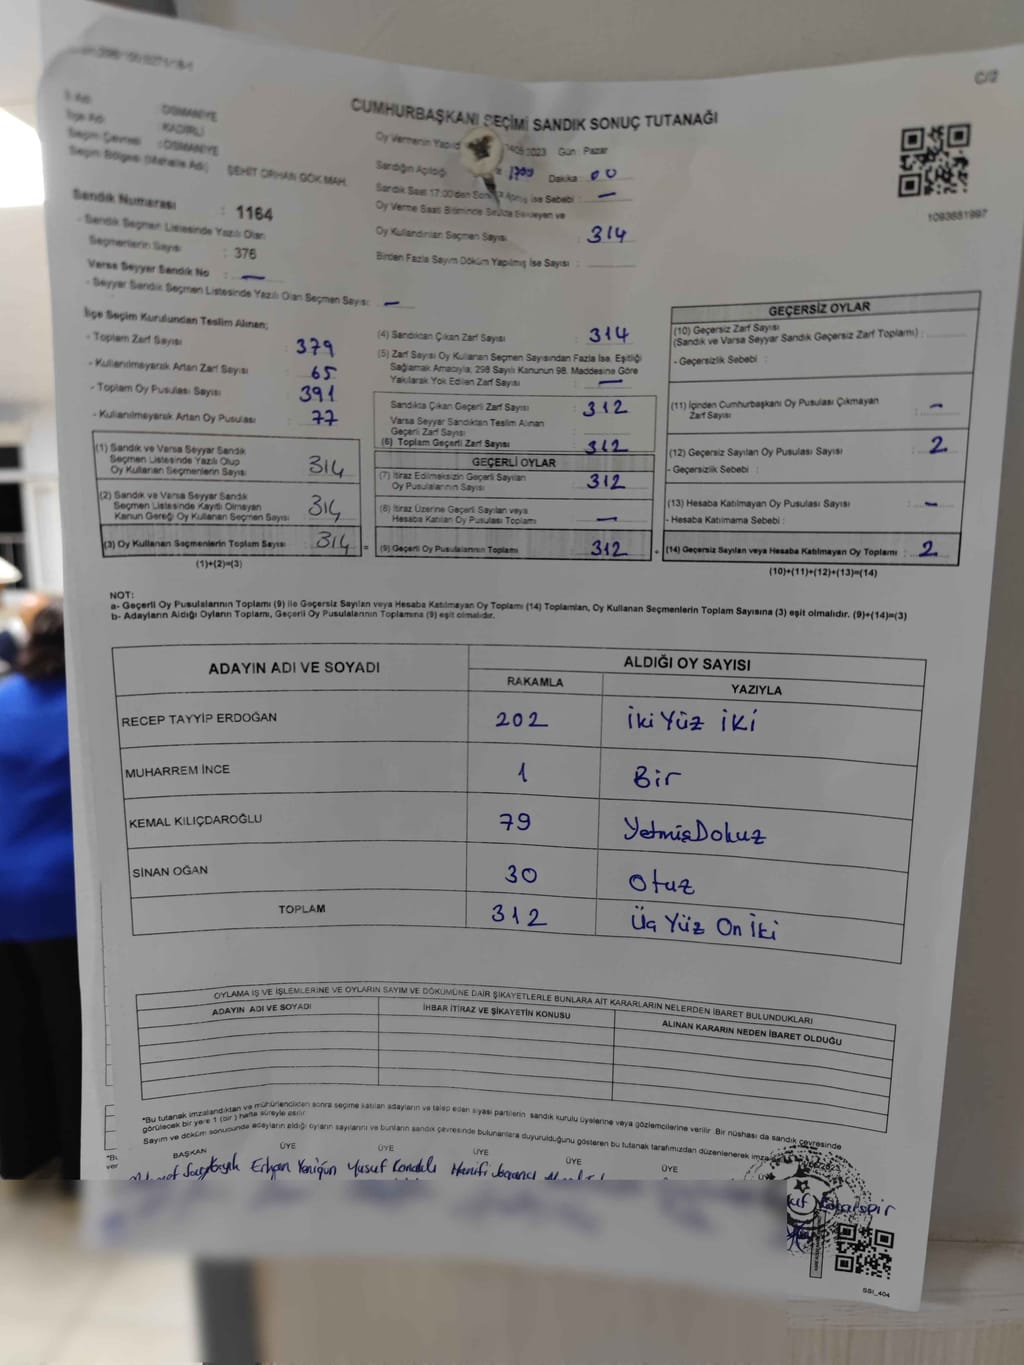 C/2
CUMHURBAŞKANI SEÇİMİ SANDIK SONUÇ TUTANAĞI
İl Adı : OSMANİYE
İlçe Adı : KADİRLİ
Seçim Çevresi : OSMANİYE
Seçim Bölgesi (Mahalle Adı) : ŞEHİT ORHAN GÖK MAH.
Sandık Numarası : 1164
- Sandık Seçmen Listesinde Yazılı Olan
Seçmenlerin Sayısı : 376
Varsa Seyyar Sandık No : —
- Seyyar Sandık Seçmen Listesinde Yazılı Olan Seçmen Sayısı: —
Oy Vermenin Yapıldı 2023 Gün : Pazar
Sandığın Açıldığı Dakika : 00
Sandık Saat 17:00'den Son ise Sebebi : —
Oy Verme Saati Bitiminde Sırada Bekleyen ve
Oy Kullandırılan Seçmen Sayısı : 314
Birden Fazla Sayım Döküm Yapılmış İse Sayısı :
1093681997
İlçe Seçim Kurulundan Teslim Alınan;
- Toplam Zarf Sayısı : 379
- Kullanılmayarak Artan Zarf Sayısı : 65
- Toplam Oy Pusulası Sayısı : 391
- Kullanılmayarak Artan Oy Pusulası : 77
(1) Sandık ve Varsa Seyyar Sandık
Seçmen Listesinde Yazılı Olup
Oy Kullanan Seçmenlerin Sayısı : 314
(2) Sandık ve Varsa Seyyar Sandık
Seçmen Listesinde Kayıtlı Olmayan
Kanun Gereği Oy Kullanan Seçmen Sayısı : 314
(3) Oy Kullanan Seçmenlerin Toplam Sayısı : 314 =
(1)+(2)=(3)
(4) Sandıktan Çıkan Zarf Sayısı : 314
(5) Zarf Sayısı Oy Kullanan Seçmen Sayısından Fazla İse, Eşitliği
Sağlamak Amacıyla; 298 Sayılı Kanunun 98. Maddesine Göre
Yakılarak Yok Edilen Zarf Sayısı : —
Sandıkta Çıkan Geçerli Zarf Sayısı : 312
Varsa Seyyar Sandıktan Teslim Alınan
Geçerli Zarf Sayısı :
(6) Toplam Geçerli Zarf Sayısı : 312
GEÇERLİ OYLAR
(7) İtiraz Edilmeksizin Geçerli Sayılan
Oy Pusulalarının Sayısı : 312
(8) İtiraz Üzerine Geçerli Sayılan veya
Hesaba Katılan Oy Pusulası Toplamı : —
(9) Geçerli Oy Pusulalarının Toplamı : 312 +
GEÇERSİZ OYLAR
(10) Geçersiz Zarf Sayısı
(Sandık ve Varsa Seyyar Sandık Geçersiz Zarf Toplamı) :
- Geçersizlik Sebebi :
(11) İçinden Cumhurbaşkanı Oy Pusulası Çıkmayan
Zarf Sayısı : —
(12) Geçersiz Sayılan Oy Pusulası Sayısı : 2
- Geçersizlik Sebebi :
(13) Hesaba Katılmayan Oy Pusulası Sayısı : —
- Hesaba Katılmama Sebebi :
(14) Geçersiz Sayılan veya Hesaba Katılmayan Oy Toplamı : 2
(10)+(11)+(12)+(13)=(14)
NOT:
a- Geçerli Oy Pusulalarının Toplamı (9) ile Geçersiz Sayılan veya Hesaba Katılmayan Oy Toplamı (14) Toplamları, Oy Kullanan Seçmenlerin Toplam Sayısına (3) eşit olmalıdır. (9)+(14)=(3)
b- Adayların Aldığı Oyların Toplamı, Geçerli Oy Pusulalarının Toplamına (9) eşit olmalıdır.
ADAYIN ADI VE SOYADI ALDIĞI OY SAYISI
RAKAMLA YAZIYLA
RECEP TAYYİP ERDOĞAN 202 İki Yüz İKİ
MUHARREM İNCE 1 Bir
KEMAL KILIÇDAROĞLU 79 YetmişDokuz
SİNAN OĞAN 30 Otuz
TOPLAM 312 Üç Yüz On İki
OYLAMA İŞ VE İŞLEMLERİNE VE OYLARIN SAYIM VE DÖKÜMÜNE DAİR ŞİKAYETLERLE BUNLARA AİT KARARLARIN NELERDEN İBARET BULUNDUKLARI
ADAYIN ADI VE SOYADI İHBAR İTİRAZ VE ŞİKAYETİN KONUSU ALINAN KARARIN NEDEN İBARET OLDUĞU
"Bu tutanak imzalandıktan ve mühürlendikten sonra seçime katılan adayların ve talep eden siyasi partilerin sandık kurulu üyelerine veya gözlemcilerine verilir. Bir nüshası da sandık çevresinde
görülecek bir yere 1 (bir) hafta süreyle asılır.
Sayım ve döküm sonucunda adayların aldığı oyların sayılarını ve bunların sandık çevresinde bulunanlara duyurulduğunu gösteren bu tutanak tarafımızdan düzenlenerek imza
BAŞKAN ÜYE ÜYE ÜYE ÜYE ÜYE
Erhan Yusuf Hanifi
SSI_404